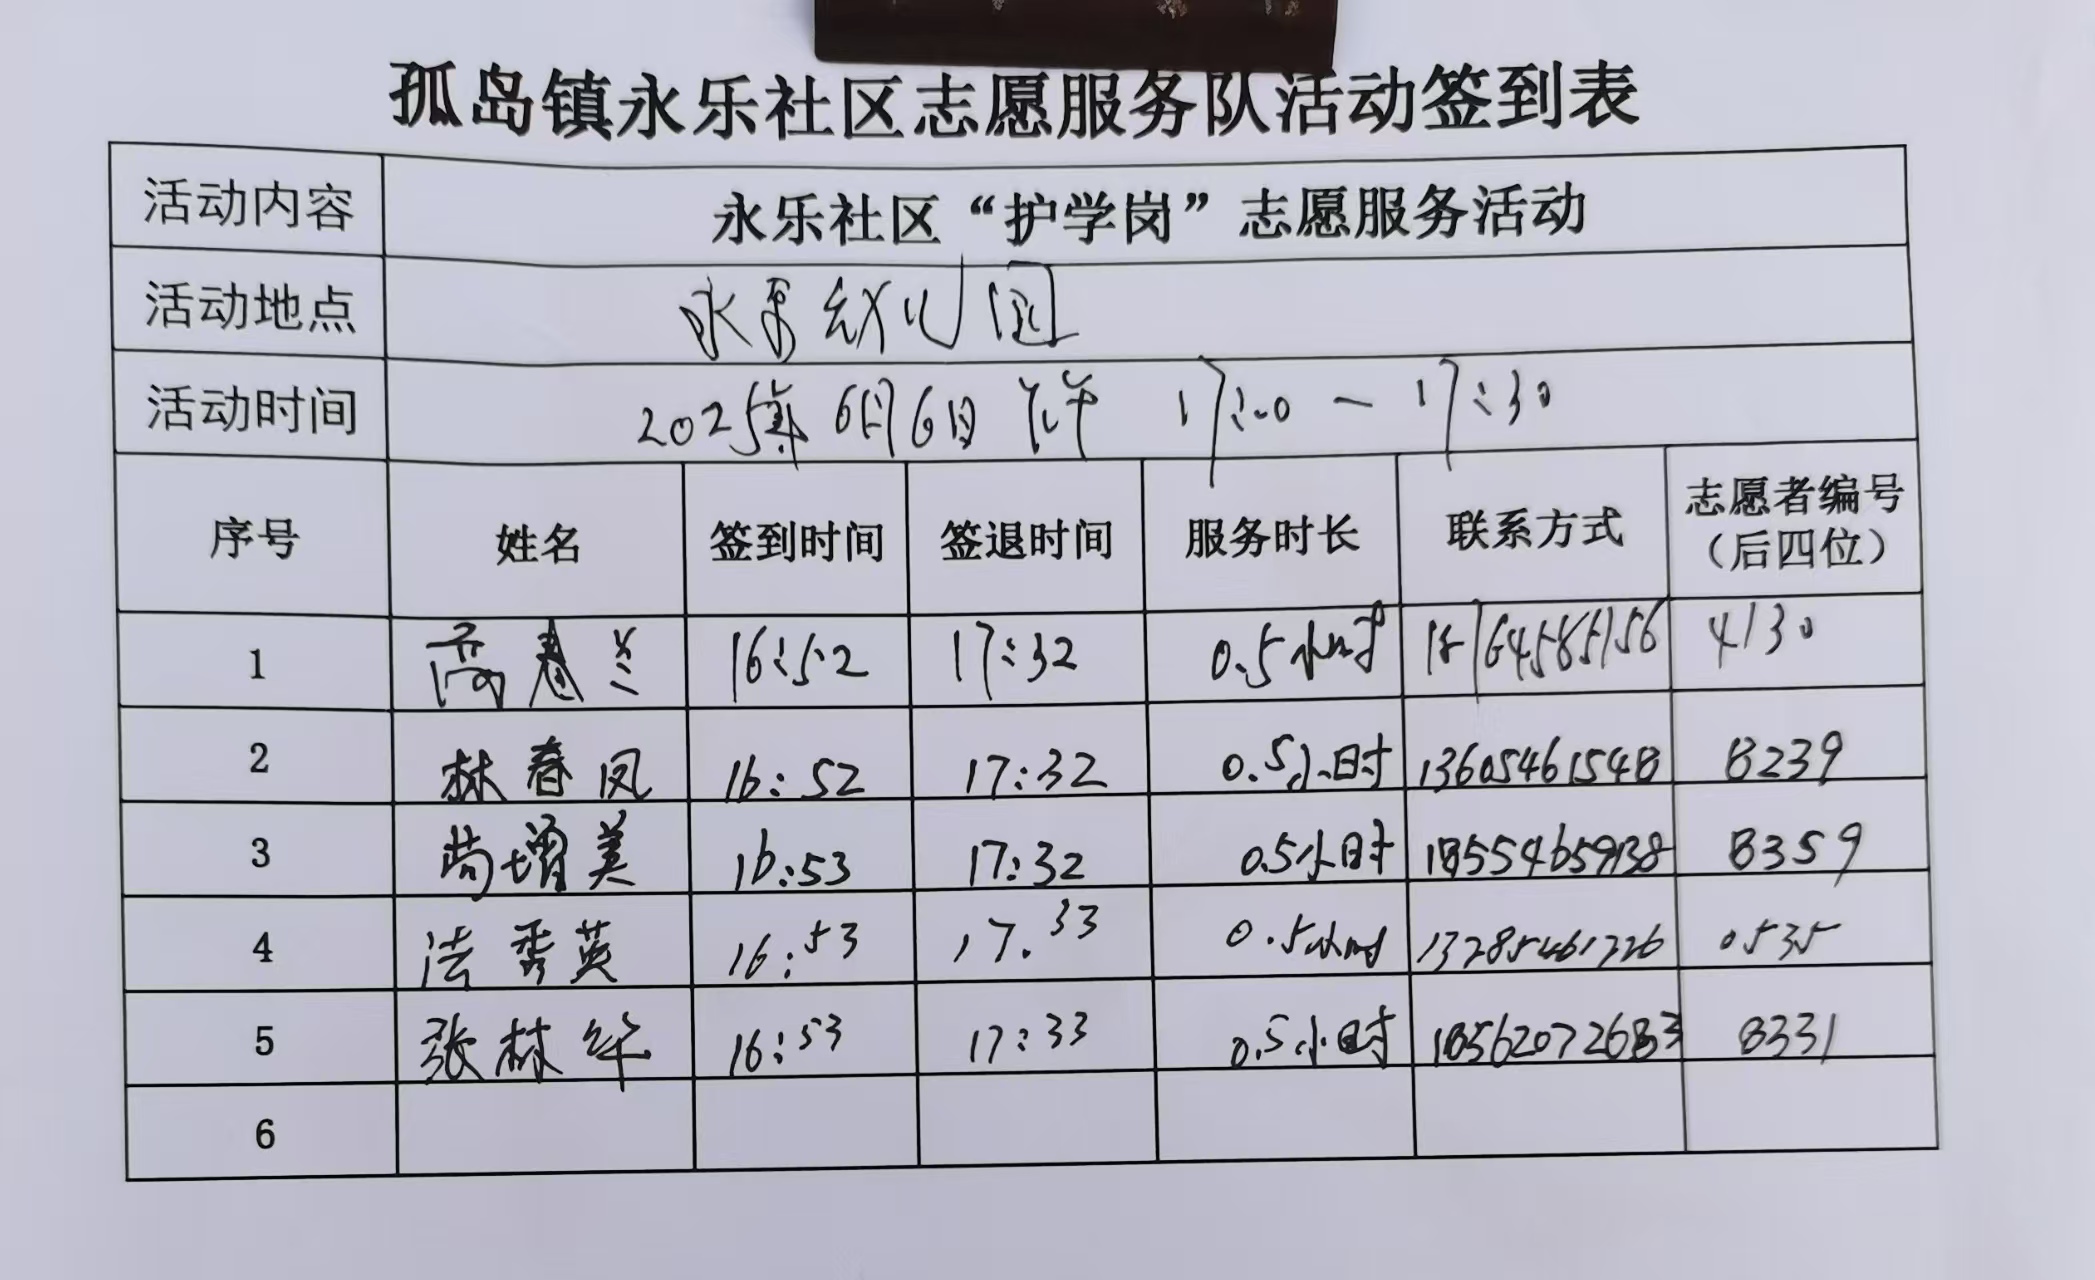 孤岛镇永乐社区志愿服务队活动签到表
活动内容 永乐社区“护学岗”志愿服务活动
活动地点 永乐幼儿园
活动时间 2025年6月6日 下午 17:00－17:30
序号 姓名 签到时间 签退时间 服务时长 联系方式 志愿者编号（后四位）
1 高春兰 16:52 17:32 0.5小时 18764585156 4130
2 林春凤 16:52 17:32 0.5小时 13605461548 8239
3 尚增美 16:53 17:32 0.5小时 18554659138 8359
4 法秀英 16:53 17.33 0.5小时 13285461226 0535
5 张林华 16:53 17:33 0.5小时 18562072683 8331
6